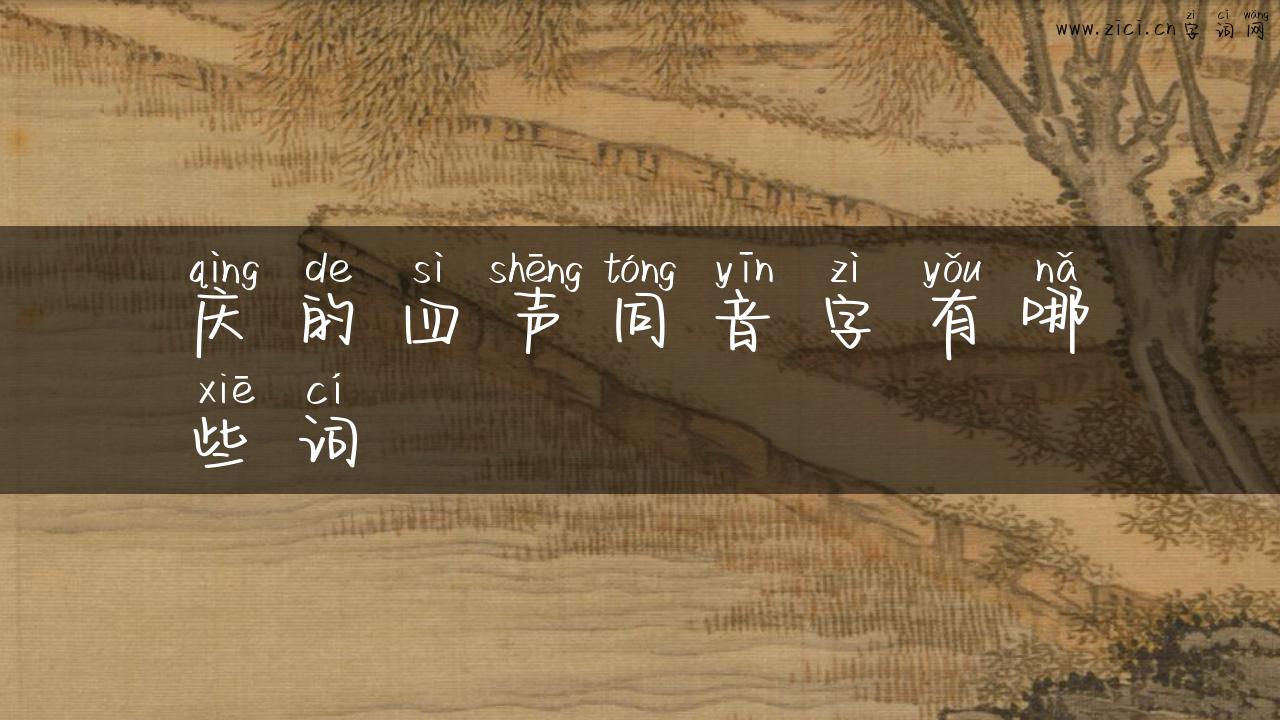 zì cí wǎng
www.zici.cn字词网
qìng de sì shēng tóng yīn zì yǒu nǎ
庆的四声同音字有哪
xiē cí
些词